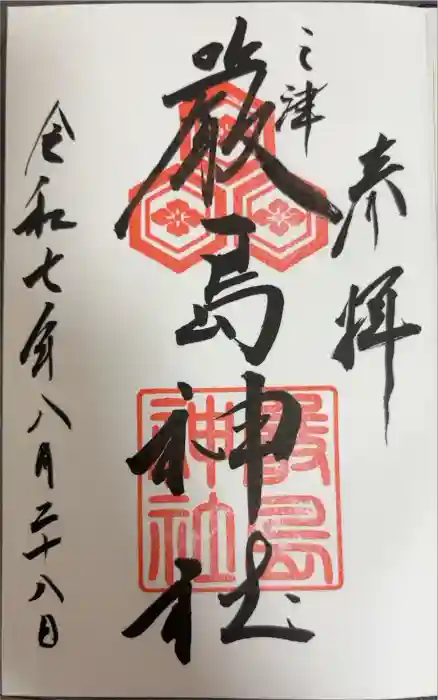 奉拝
三津
厳島神社
令和七年八月二十八日
嚴島
神社